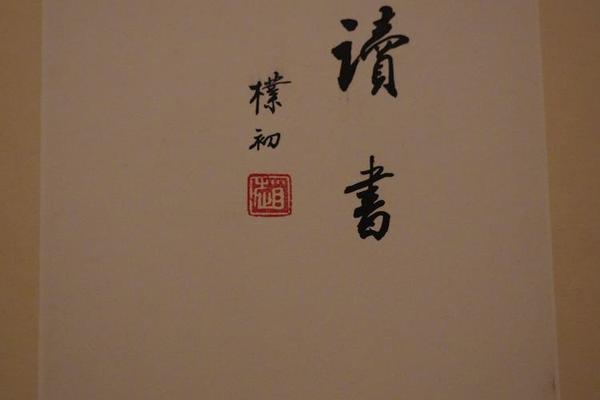 讀書
樸初
趙